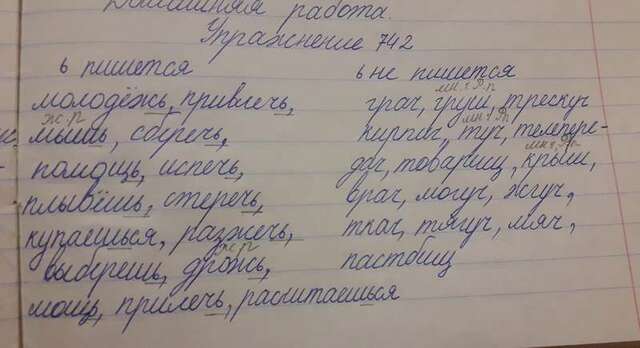 Домашняя работа.
Упражнение 742
ь пишется
молодёжь, привлечь,
ж.р
мышь, сберечь,
помощь, испечь,
плывёшь, стеречь,
купаешься, разжечь,
ж.р
выберешь, дрожь,
мощь, прилечь, расчитаешься
ь не пишется
мн.ч Р.п
грач, груш, трескуч
мн.ч Рп
кирпич, туч, телепере-
мн.ч, Р.п
дач, товарищ, крыш,
врач, могуч, жгуч,
ткач, тягуч, мяч,
пастбищ